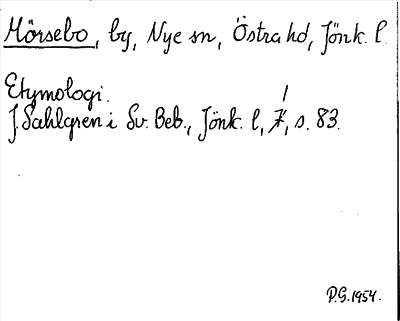 Mörsebo, by, Nye sn, Östra hd, Jönk. l.
Etymologi.
J. Sahlgren i Sv. Beb., Jönk. l, 1, s. 83.
P.G. 1954.